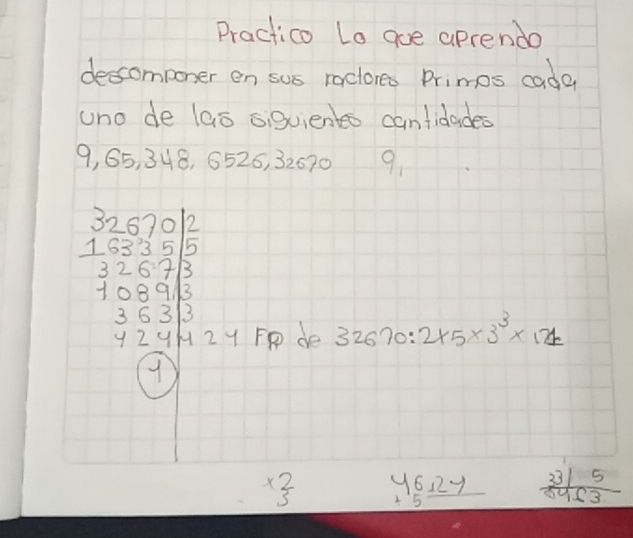 Practico Lo que aprendo
descomponer en sus factores Primos cada
uno de las siguientes cantidades
9, 65, 348, 6526, 32670 9,
32670|2
16335|5
3267|3
1089|3
363|3
121|121 FP de 32670: 2x5x3³x
1
x 2
3